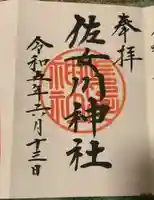 奉拝
佐女川神社
令和五年六月十三日